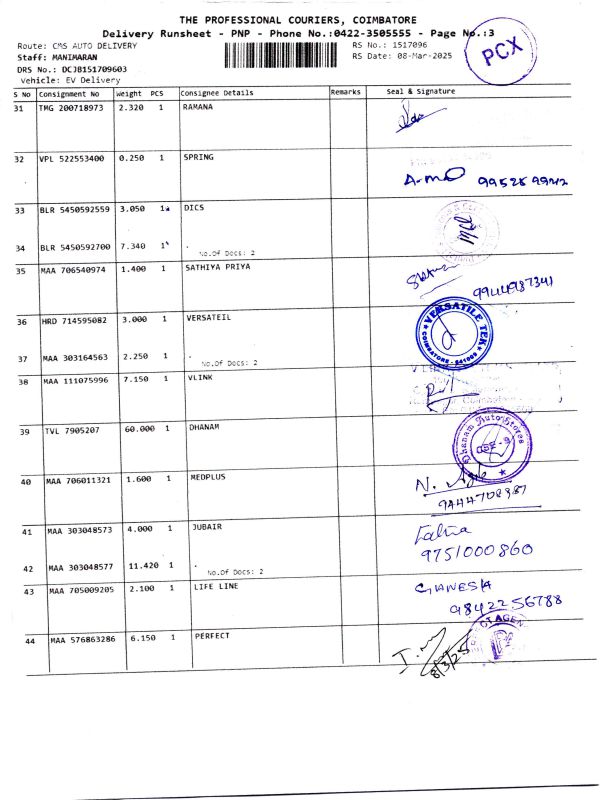 THE PROFESSIONAL COURIERS, COIMBATORE
Delivery Runsheet - PNP - Phone No.:0422-3505555 - Page No.:3
Route: CMS AUTO DELIVERY RS No.: 1517096
Staff: MANIMARAN RS Date: 08-Mar-2025
DRS No.: DCJB151709603
Vehicle: EV Delivery
PCX
S No Consignment No Weight PCS Consignee Details Remarks Seal & Signature
31 TMG 200718973 2.320 1 RAMANA
32 VPL 522553400 0.250 1 SPRING
33 BLR 5450592559 3.050 1 DICS
34 BLR 5450592700 7.340 1
No.Of Docs: 2
35 MAA 706540974 1.400 1 SATHIYA PRIYA
9944987341
36 HRD 714595082 3.000 1 VERSATEIL
VERSATILE TEK
COIMBATORE
37 MAA 303164563 2.250 1
No.Of Docs: 2
38 MAA 111075996 7.150 1 VLINK
39 TVL 7905207 60.000 1 DHANAM
Dhanam Auto Stores
40 MAA 706011321 1.600 1 MEDPLUS
41 MAA 303048573 4.000 1 JUBAIR
9751000860
42 MAA 303048577 11.420 1
No.Of Docs: 2
43 MAA 705009205 2.100 1 LIFE LINE
GANESH
9842256788
44 MAA 576863286 6.150 1 PERFECT
8/3/25